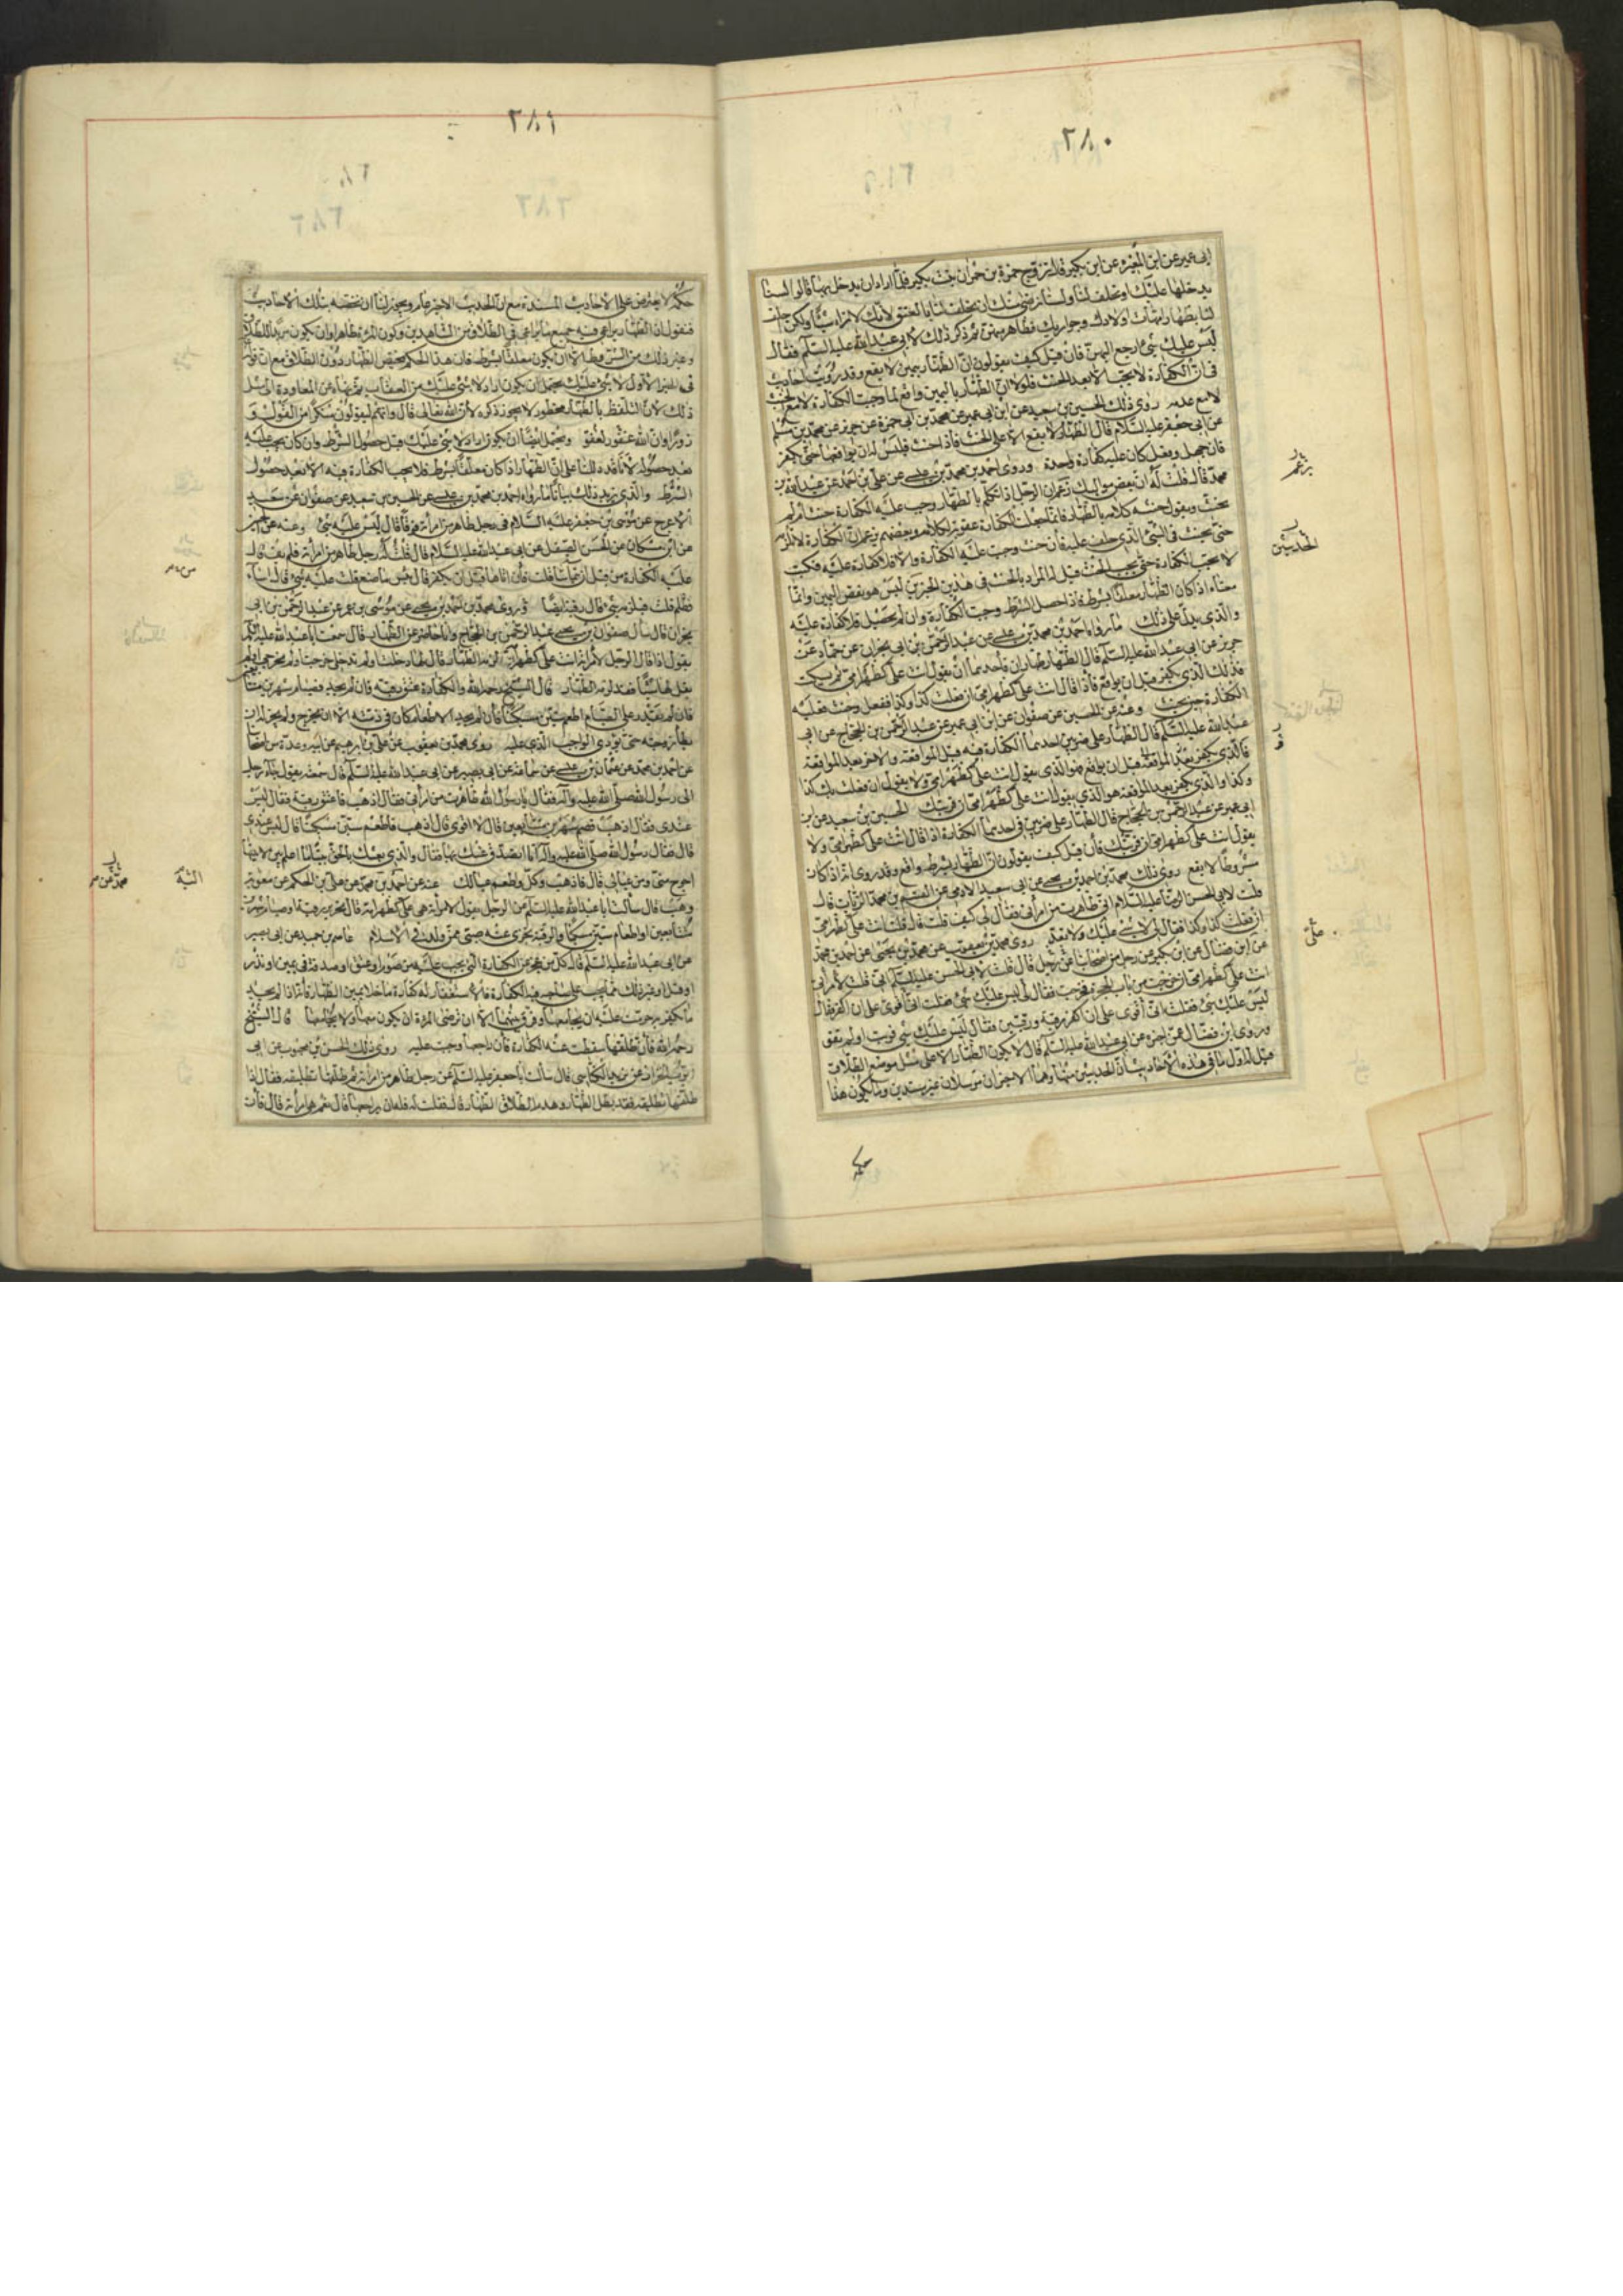 ٢٨٠
ابى عمير عن ابن المغيره عن ابن بكير قال تزوج حمزة بن حمران بنت بكير فلما اراد ان يدخل بها قالوا لسنا
ندخلها عليك او تحلف لنا ولسنا نرضى منك ان تحلف لنا بالعتق لانك لا تراه شيئا ولكن احلف
لنا بظهار امهات اولادك وجواريك فظاهر منهن ثم ذكر ذلك لابى عبد الله عليه السلام فقال
ليس عليك شئ ارجع اليهن فان قيل كيف يقولون ان الظهار بيمين لا يقع وقد رويت احاديث
فى ان الكفارة لا يجب الا بعد الحنث فلولا ان الظهار باليمين واقع لما وجبت الكفارة لا مع الحنث
لا مع عدمه روى ذلك الحسين بن سعيد عن ابن ابى عمير عن محمد بن ابى حمزة عن حريز عن محمد بن مسلم
عن ابى جعفر عليه السلام قال الظهار لا يقع الا على الحنث فاذا حنث فليس له ان يواقعها حتى يكفر
فان جهل وفعل كان عليه كفارة واحدة وروى احمد بن محمد بن عيسى عن على بن احمد عن عبد الله بن
محمد قال قلت له ان بعض مواليك يزعم ان الرجل اذا تكلم بالظهار وجب عليه الكفارة حنث او لم
يحنث ويقول حنثه كلامه بالظهار فانما جعلت الكفارة عقوبة لكلامه وبعضهم يزعم ان الكفارة لا تلزمه
حتى يحنث فى الشئ الذى حلف عليه فان حنث وجبت عليه الكفارة والا فلا كفارة عليه فكتب
لا يجب الكفارة حتى يجب الحنث قيل له المراد بالحنث فى هذين الخبرين ليس هو نقض اليمين وانما
معناه اذا كان الظهار معلقا بشرط فاذا حصل الشرط وجبت الكفارة وان لم يحصل فلا كفارة عليه
والذى يدل على ذلك ما رواه احمد بن محمد بن عيسى عن عبد الرحمن بن ابى نجران عن حماد عن
حريز عن ابى عبد الله عليه السلم قال الظهار ظهاران فاحدهما ان يقول انت على كظهر امى ثم يسكت
فذلك الذى يكفر قبل ان يواقع فاذا قال انت على كظهر امى ان فعلت كذا وكذا ففعل وحنث فعليه
الكفارة حين يحنث وعنه عن الحسين عن صفوان عن ابن ابى عمير عن عبد الرحمن بن الحجاج عن ابى
عبد الله عليه السلم قال الظهار على ضربين احدهما الكفارة فيه قبل المواقعة والاخر بعد المواقعة
فالذى يكفر قبل ان يواقع فهو الذى يقول انت على كظهر امى ولا يقول ان فعلت بك كذا
وكذا والذى يكفر بعد المواقعة هو الذى يقول انت على كظهر امى ان قربتك الحسين بن سعيد عن ابن
ابى عمير عن عبد الرحمن بن الحجاج قال الظهار على ضربين فى احدهما الكفارة اذا قال انت على كظهر امى ولا
يقول انت على كظهر امى ان قربتك فان قيل كيف يقولون ان الظهار بشرط واقع وقد روى انه اذا كان
مشروطا لا يقع روى ذلك محمد بن احمد بن يحيى عن ابى سعيد الادمى عن القسم بن محمد الزيات قال
قلت لابى الحسن الرضا عليه السلام انى ظاهرت من امرأتى فقال لى كيف قلت قال قلت انت على كظهر امى
ان فعلت كذا وكذا فقال لى لا شئ عليك ولا تعد روى محمد بن يعقوب عن محمد بن يحيى عن احمد بن محمد
عن ابن فضال عن ابن بكير عن رجل من اصحابنا عن رجل قال قلت لابى الحسن عليه السلم انى قلت لامرأتى
انت على كظهر امى ان خرجت من باب الحجرة فخرجت فقال لى ليس عليك شئ فقلت انى اقوى على ان اكفر فقال
ليس عليك شئ فقلت انى اقوى على ان اكفر رقبة ورقبتين فقال ليس عليك شئ قويت او لم تقو
وروى ابن فضال عمن اخبره عن ابى عبد الله عليه السلم قال لا يكون الظهار الا على مثل موضع الطلاق
قيل له اول ما فى هذه الاخبار ان الحديثين منهما وهما الاخيران مرسلان غير مسندين وما يكون هذا
الحديثين
على
حكمه
٢٨١
حكمه لا يعترض على الاحاديث المسندة مع ان الحديث الاخير عام ويجوز لنا ان نخصه بتلك الاحاديث
فنقول ان الظهار يراعى فيه جميع ما يراعى فى الطلاق من الشاهدين وكون المرءة طاهرا وان يكون مريدا للطلاق
وغير ذلك من الشروط الا ان يكون معلقا بشرط فان هذا الحكم يختص الظهار دون الطلاق مع ان قوله
فى الخبر الاول لا شئ عليك يحتمل ان يكون اراد لا شئ عليك من العقاب ثم نهاه عن المعاودة الى مثل
ذلك لان التلفظ بالظهار محظور لا يجوز ذكره لان الله تعالى قال وانهم ليقولون منكرا من القول و
زورا وان الله لعفو غفور ويحتمل ايضا ان يكون اراد لا شئ عليك قبل حصول الشرط وان كان يجب عليه
بعد حصوله لانا قد دللنا على ان الظهار اذا كان معلقا بشرط فلا يجب الكفارة فيه الا بعد حصول
الشرط والذى يزيد ذلك بيانا ما رواه احمد بن محمد بن عيسى عن الحسين بن سعيد عن صفوان عن سعيد
الاعرج عن موسى بن جعفر عليه السلام فى رجل ظاهر من امرأته فوفا قال ليس عليه شئ وعنه عن
عن ابن مسكان عن الحسن الصيقل عن ابى عبد الله عليه السلام قال قلت له رجل ظاهر من امرأته فلم يف قال
عليه الكفارة من قبل ان يتماسا قلت فان اتاها قبل ان يكفر قال بئس ما صنع قلت عليه شئ قال اساء
وظلم قلت فيلزمه شئ قال رقبة ايضا وروى محمد بن احمد بن يحيى عن موسى بن عمر عن عبد الرحمن بن ابى
نجران قال سأل صفوان بن يحيى عبد الرحمن بن الحجاج وانا حاضر عن الظهار قال سمعت ابا عبد الله عليه السلم
يقول اذا قال الرجل لامرأته انت على كظهر امى لزمه الظهار قال لها دخلت او لم تدخلى خرجت او لم تخرجى او لم
يقل لها شيئا فقد لزمه الظهار قال الشيخ رحمه الله والكفارة عتق رقبة فان لم يجد فصيام شهرين متتا
فان لم يقدر على الصيام اطعم ستين مسكينا فان لم يجد الاطعام كان فى ذمته الا ان يخرج ولم يجز له ان
يطأ زوجته حتى يؤدى الواجب الذى عليه روى محمد بن يعقوب عن على بن ابرهيم عن ابيه وعدة من اصحابنا
عن احمد بن محمد عن عثمان بن عيسى عن سماعة عن ابى بصير عن ابى عبد الله عليه السلم قال سمعته يقول جاء رجل
الى رسول الله صلى الله عليه وآله فقال يا رسول الله ظاهرت من امرأتى فقال اذهب فاعتق رقبة فقال ليس
عندى فقال اذهب فصم شهرين متتابعين قال لا اقوى قال اذهب فاطعم ستين مسكينا قال ليس عندى
قال فقال رسول الله صلى الله عليه وآله انا اتصدق عنك بها فقال والذى بعثك بالحق نبيا ما اعلم بين لابتيها
احوج منى ومن عيالى قال فاذهب وكل واطعم عيالك عنه عن احمد بن محمد عن على بن الحكم عن معوية بن
وهب قال سألت ابا عبد الله عليه السلم عن الرجل يقول لامرأته هى على كظهر امه قال تحرير رقبة او صيام شهرين
متتابعين او اطعام ستين مسكينا والرقبة يجزى عنه صبى ممن ولد فى الاسلام عاصم بن حميد عن ابى بصير
عن ابى عبد الله عليه السلم قال كل من عجز عن الكفارة التى يجب عليه من صوم او عتق او صدقة فى يمين او نذر
او قتل او غير ذلك مما يجب على صاحبه فيه الكفارة فالاستغفار له كفارة ما خلا يمين الظهار فانه اذا لم يجد
ما يكفر به حرمت عليه ان يجامعها وفرق بينهما الا ان ترضى المرءة ان يكون معها ولا يجامعها قال الشيخ
رحمه الله فان طلقها سقطت عنه الكفارة فان راجعها وجبت عليه روى ذلك الحسن بن محبوب عن ابى
ايوب الخزاز عن يزيد الكناسى قال سألت ابا جعفر عليه السلم عن رجل ظاهر من امرأته ثم طلقها تطليقة فقال اذا
طلقها تطليقة فقد بطل الظهار وهدم الطلاق الظهار قال فقلت له فله ان يراجعها قال نعم هى امرأته قال فان